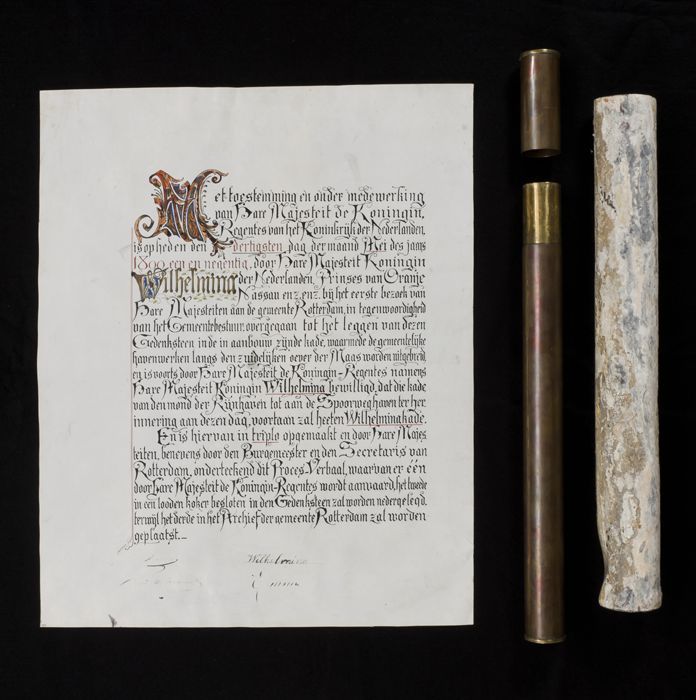 Met toestemming en onder medewerking
van Hare Majesteit de Koningin,
Regentes van het Koninkrijk der Nederlanden,
is op heden den dertigsten dag der maand Mei des jaars
1800 een en negentig, door Hare Majesteit Koningin
Wilhelmina der Nederlanden, Prinses van Oranje
Nassau enz. enz. bij het eerste bezoek van
Hare Majesteiten aan de gemeente Rotterdam, in tegenwoordigheid
van het Gemeentebestuur, overgegaan tot het leggen van dezen
Gedenksteen in de in aanbouw zijnde kade, waarmede de gemeentelijke
havenwerken langs den zuidelijken oever der Maas worden uitgebreid,
en is voorts door Hare Majesteit de Koningin-Regentes namens
Hare Majesteit Koningin Wilhelmina bewilligd, dat die kade
van den mond der Rijnhaven tot aan de Spoorweghaven ter her
innering aan dezen dag, voortaan zal heeten Wilhelminakade.
En is hiervan in triplo opgemaakt en door Hare Majes
teiten, benevens door den Burgemeester en den Secretaris van
Rotterdam, onderteekend dit Proces Verbaal, waarvan er één
door Hare Majesteit de Koningin-Regentes wordt aanvaard, het tweede
in een looden koker besloten in den Gedenksteen zal worden nedergelegd,
terwijl het derde in het Archief der gemeente Rotterdam zal worden
geplaatst._
Wilhelmina